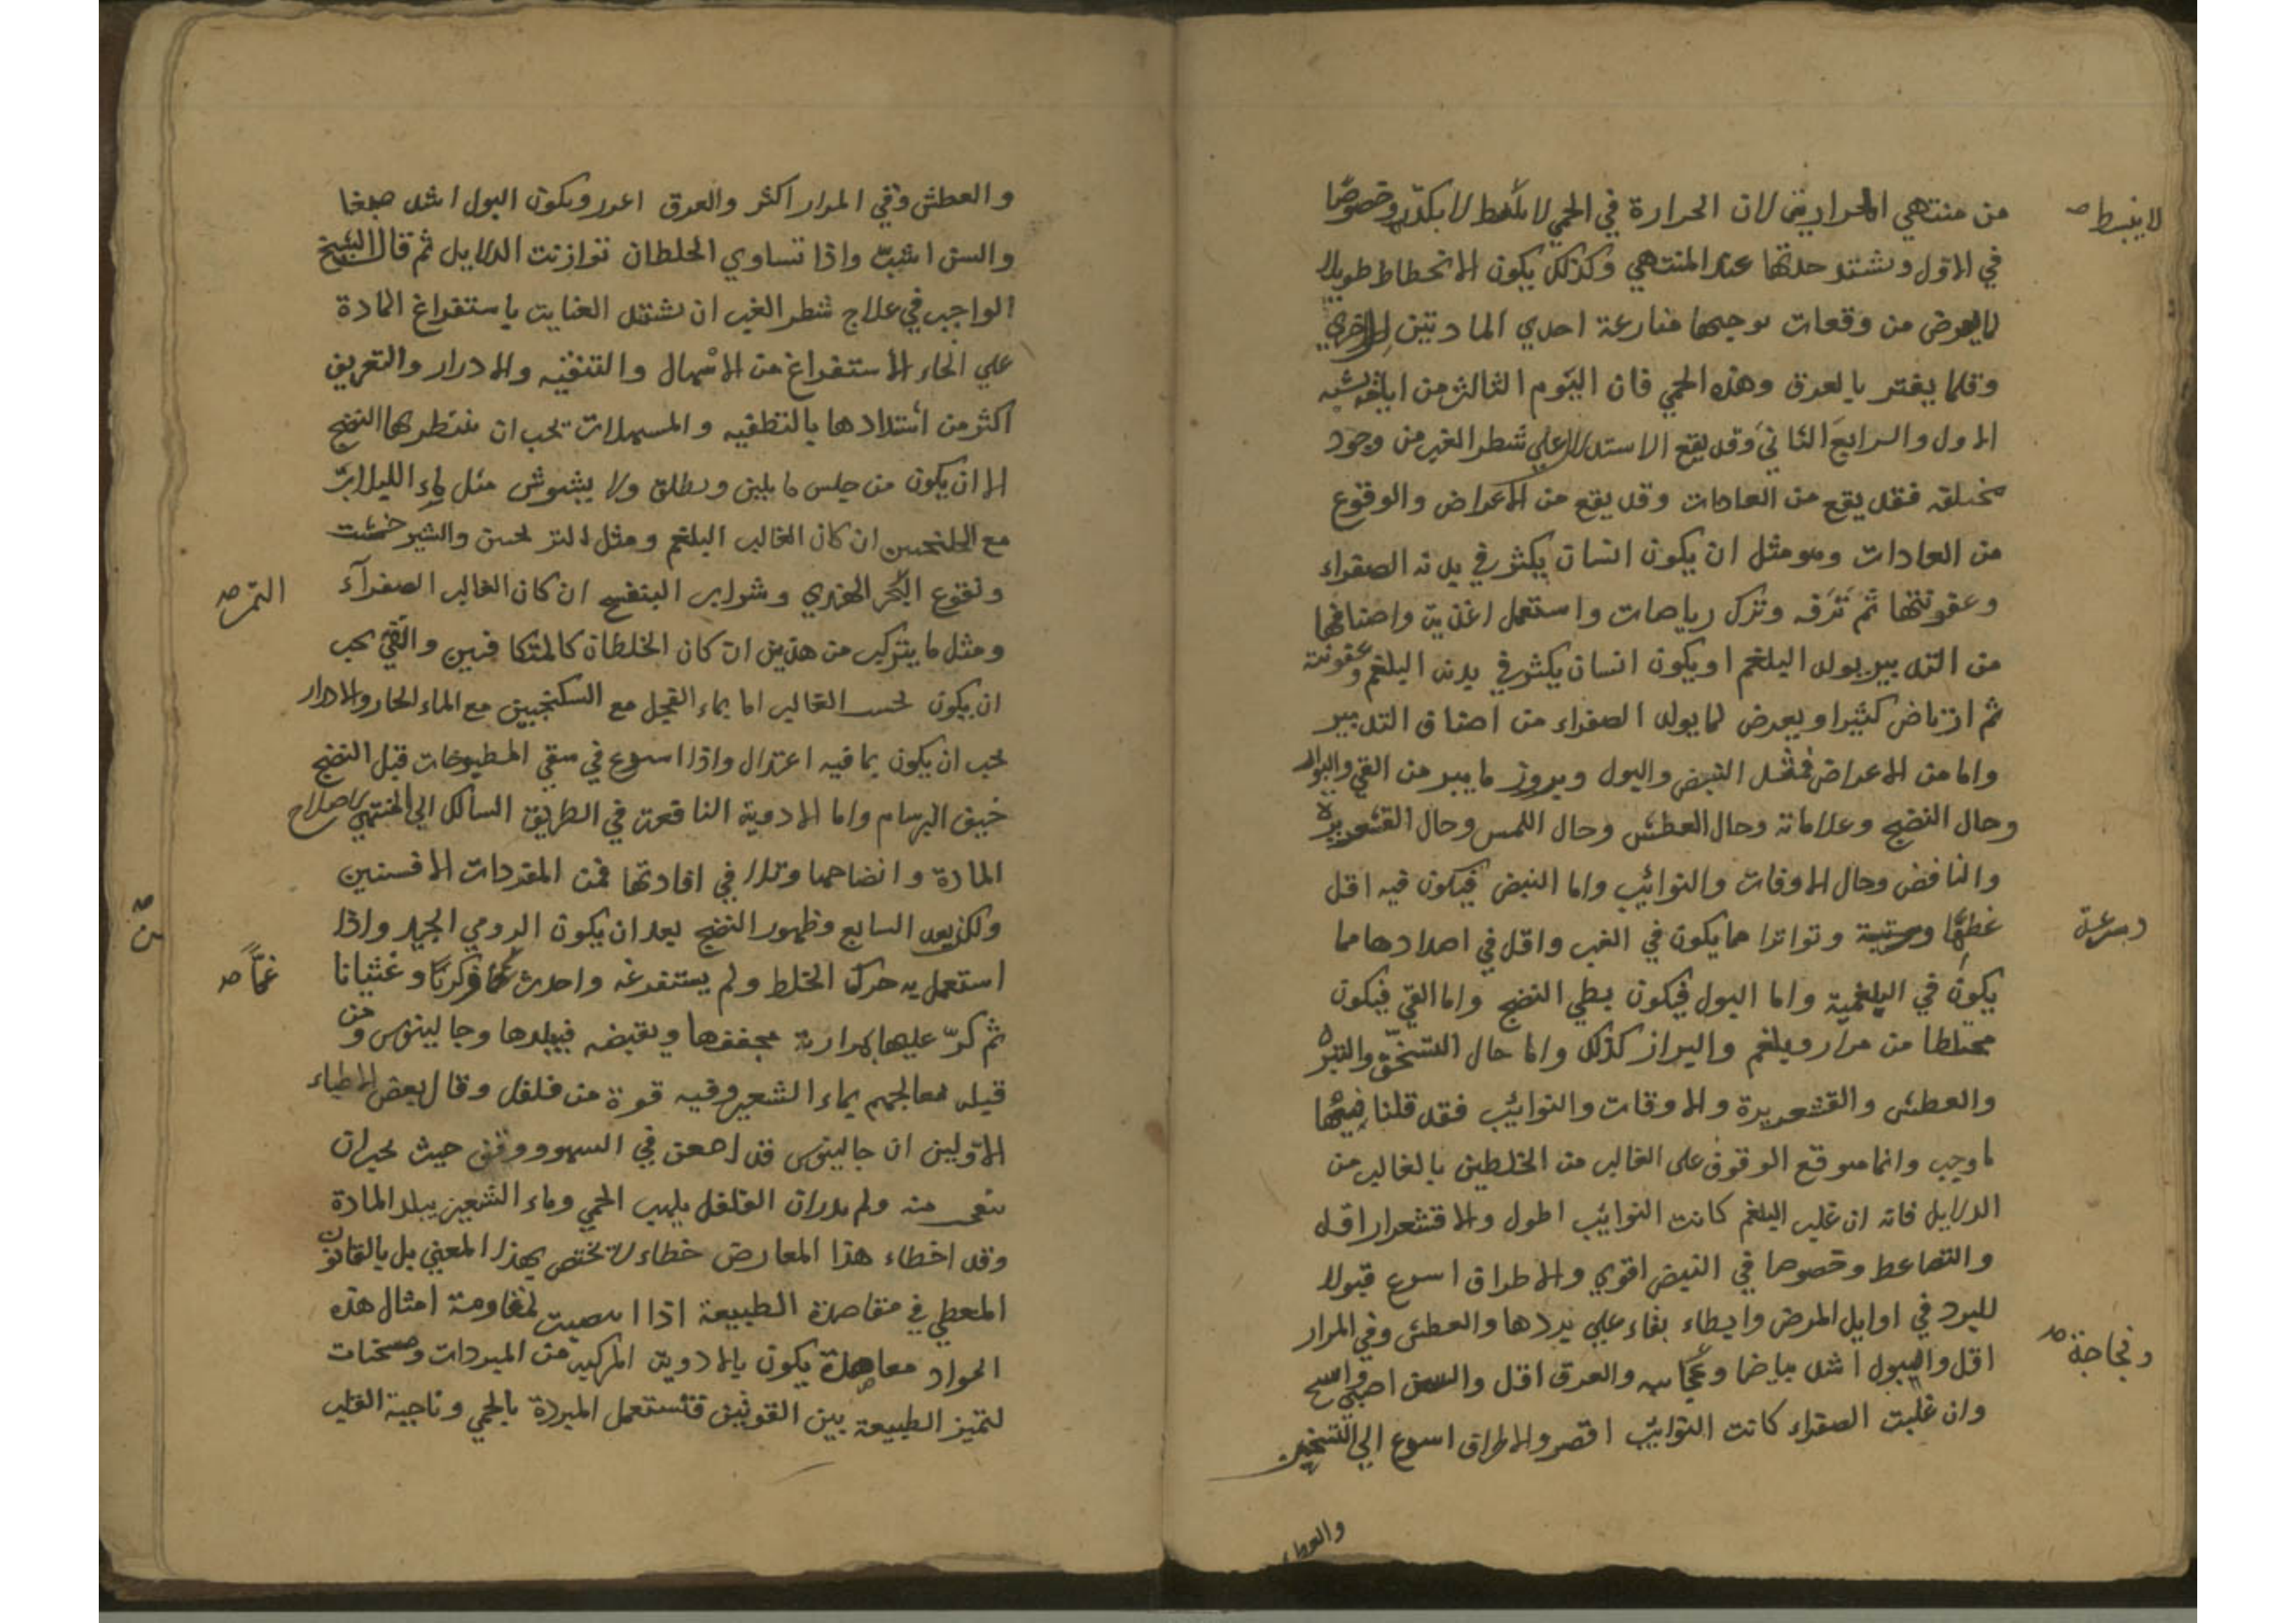 من منتهي الحرارتين لان الحرارة في الحمي لا تنبسط لا بكدّ وخصوصًا
لا ينبسط صح
في الاول وتشتد حدتها عند المنتهي وكذلك يكون الانحطاط طويلا
لما يعرض من وقعات توجبها منازعة احدي المادتين للاخري
وقلما يفتر بالعرق وهذه الحمي فان اليوم الثالث من ايامه يشبه
الاول والرابع الثاني وقد يقع الاستدلال علي شطر الغب من وجوه
مختلفه فقد يقع من العادات وقد يقع من الاعراض والوقوع
من العادات وهو مثل ان يكون انسان يكثر في بدنه الصفراء
وعفونتها ثم ترفه وترك رياضات واستعمل اغذية واصنافها
من التدبير يولد البلغم او يكون انسان يكثر في بدنه البلغم وعفونته
ثم ارتاض كثيرا ويعرض لما يولد الصفراء من اصناف التدبير
واما من الاعراض فمثل النبض والبول وبروز ما يبرز من القي والبراز
وحال النضج وعلاماته وحال العطش وحال اللمس وحال القشعريرة
والنافض وحال الاوقات والنوايب واما النبض فيكون فيه اقل
عظمًا وسرعة وتواترا مما يكون في الغب واقل في اضدادها مما
وسرعة
يكون في البلغمية واما البول فيكون بطي النضج واما القي فيكون
مختلطا من مرار وبلغم والبراز كذلك واما حال التسخن والتبرد
والعطش والقشعريرة والاوقات والنوايب فقد قلنا فيها
ما وجب وانما موقع الوقوف على الغالب من الخلطين بالغالب من
الدلايل فانه ان غلب البلغم كانت النوايب اطول والاقشعرار اقل
والتضاعط وخصوصا في النبض اقوي والاطراف اسرع قبولا
للبرد في اوايل المرض وابطاء بقاء علي بردها والعطش وفي المرار
اقل والبول اشد بياضا وفجاجة والعرق اقل والسن اصبي واسح
وفجاجة صح
وان غلبت الصفراء كانت النوايب اقصر والاطراف اسرع الي التسخين
والعطش
والعطش وقي المرار اكثر والعرق اغزر ويكون البول اشد صبغا
والسن اشبّ واذا تساوي الخلطان توازنت الدلايل ثم قال الشيخ
الواجب في علاج شطر الغب ان تشتد العناية باستفراغ المادة
علي انحاء الاستفراغ من الاسهال والتنقيه والادرار والتعريق
اكثر من اشتدادها بالتطفيه والمسهلات يجب ان ينتظر بها النضج
الا ان يكون من جنس ما يلين ويطلق ولا يشوش مثل ماء اللبلاب
مع الجلنجبين ان كان الغالب البلغم ومثل الترنجبين والشيرخشت
ونقوع التمر الهندي وشراب البنفسج ان كان الغالب الصفراء
التمر صح
ومثل ما يتركب من هذين ان كان الخلطان كالمتكافين والقي يجب
ان يكون بحسب الغالب اما بماء الفجل مع السكنجبين مع الماء الحار والادرار
يجب ان يكون بما فيه اعتدال واذا اسرع في سقي المطبوخات قبل النضج
خيف البرسام واما الادوية النافعة في الطريق السالك الي المنتهي لاصلاح
المادة وانضاجها في افادتها فمن المفردات الافسنتين
ولكن بعد السابع وظهور النضج بعد ان يكون الرومي الجيد واذا
استعمل به حرك الخلط ولم يستفرغه واحدث غمًا وكربًا وغثيانا
غمًّا صح
ثم كرّ عليها بمرارته فيجففها ويقبضه فيبلدها وجالينوس ومن
قبله معالجهم بماء الشعير وفيه قوة من فلفل وقال بعض الاطباء
الاولين ان جالينوس قد امعن في السهو ووقف حيث يجب ان
منه ولم يدر ان الفلفل يلهب الحمي وماء الشعير يبلد المادة
وقد اخطاء هذا المعارض خطاء لا تختص بهذا المعني بل بالقانون
المعطي في مقاصدة الطبيعة اذا انتصبت لمقاومة امثال هذه
المواد معاهدة يكون بالادوية المركبة من المبردات ومسخنات
لتميز الطبيعة بين القوتين فتستعمل المبردة بالحمي وناحية القلب